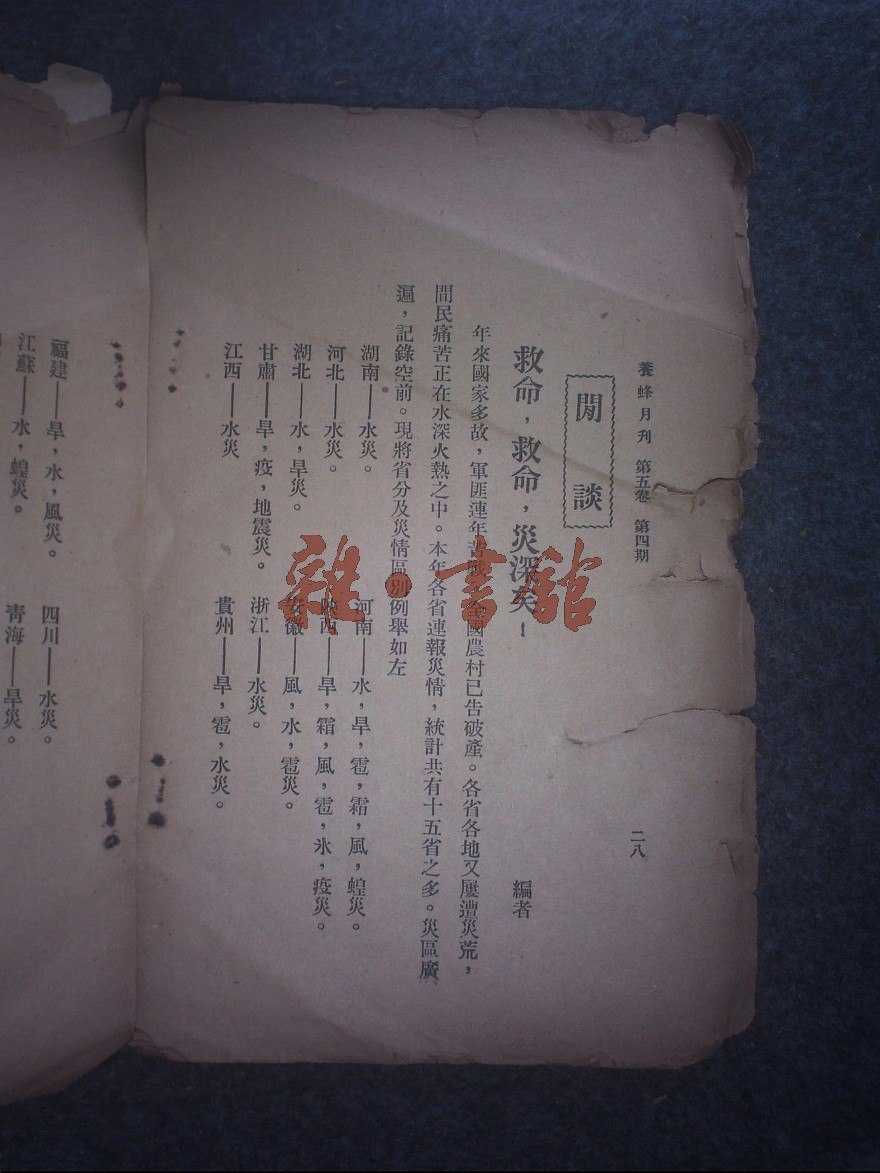 養蜂月刊 第五卷 第四期 二八
閒談
救命，救命，災深矣！ 編者
年來國家多故，軍匪連年苦戰，全國農村已告破產。各省各地又屢遭災荒，
間民痛苦正在水深火熱之中。本年各省連報災情，統計共有十五省之多。災區廣
遍，記錄空前。現將省分及災情區別例舉如左
湖南——水災。 河南——水，旱，雹，霜，風，蝗災。
河北——水災。 陝西——旱，霜，風，雹，氷，疫災。
湖北——水，旱災。 安徽——風，水，雹災。
甘肅——旱，疫，地震災。 浙江——水災。
江西——水災 貴州——旱，雹，水災。
福建——旱，水，風災。 四川——水災。
江蘇——水，蝗災。 青海——旱災。
雜·書館